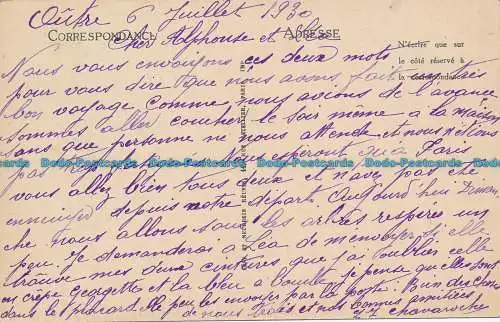 Oûtre 6 Juillet 1930
CORRESPONDANCE ADRESSE
Cher Alphonse et
N'écrire que sur
le côté réservé à
la correspondance
Nous vous envoyons ces deux mots
pour vous dire que nous avons fait très
bon voyage. Comme nous avions de l'avance
sommes aller coucher le soir même à la maison
sans que personne ne nous attende et nous n'étions
pas Nous espérons qu'à Paris
vous allez bien tous deux et n'avez pas
ennuyer depuis notre départ. Aujourd'hui Diman
che nous allons sous les arbres respirer un
peu. Je demanderai à Léa de m'envoyer si elle
trouve mes deux ceintures que j'ai oublier celle
en crêpe georgette et la bleu à boucle je pense qu'elles sont
dans le placard. Me peu les envoyer par la poste. Bien des choses
de nous trois et nos bonnes amitiées
Chavaroche
Postcards Postcards Postcards Postcards Postcards